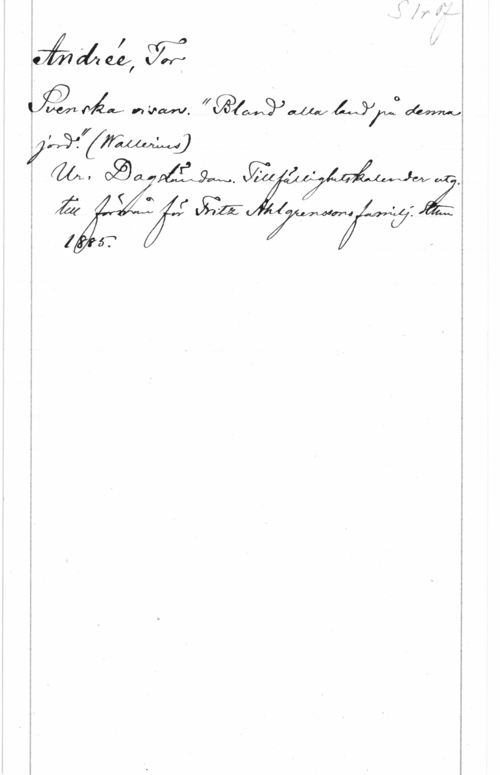 Andrée, Tor
Svenska visan. "Bland alla land på denna
jord." (Wallerius)
Ur. Dagsländan. Tillfällighetskalender utg.
till förmån för Fritz Ahlgrensons familj. Sthm
1885.